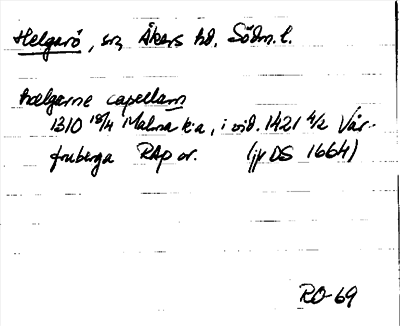 Helgarö, sn, Åkers hd, Södm. l.
hælgarne capellam
1310 18/4 Malma k:a, i vid. 1421 4/2 Vår-
fruberga RAp or. (jv DS 1664)
RO-69